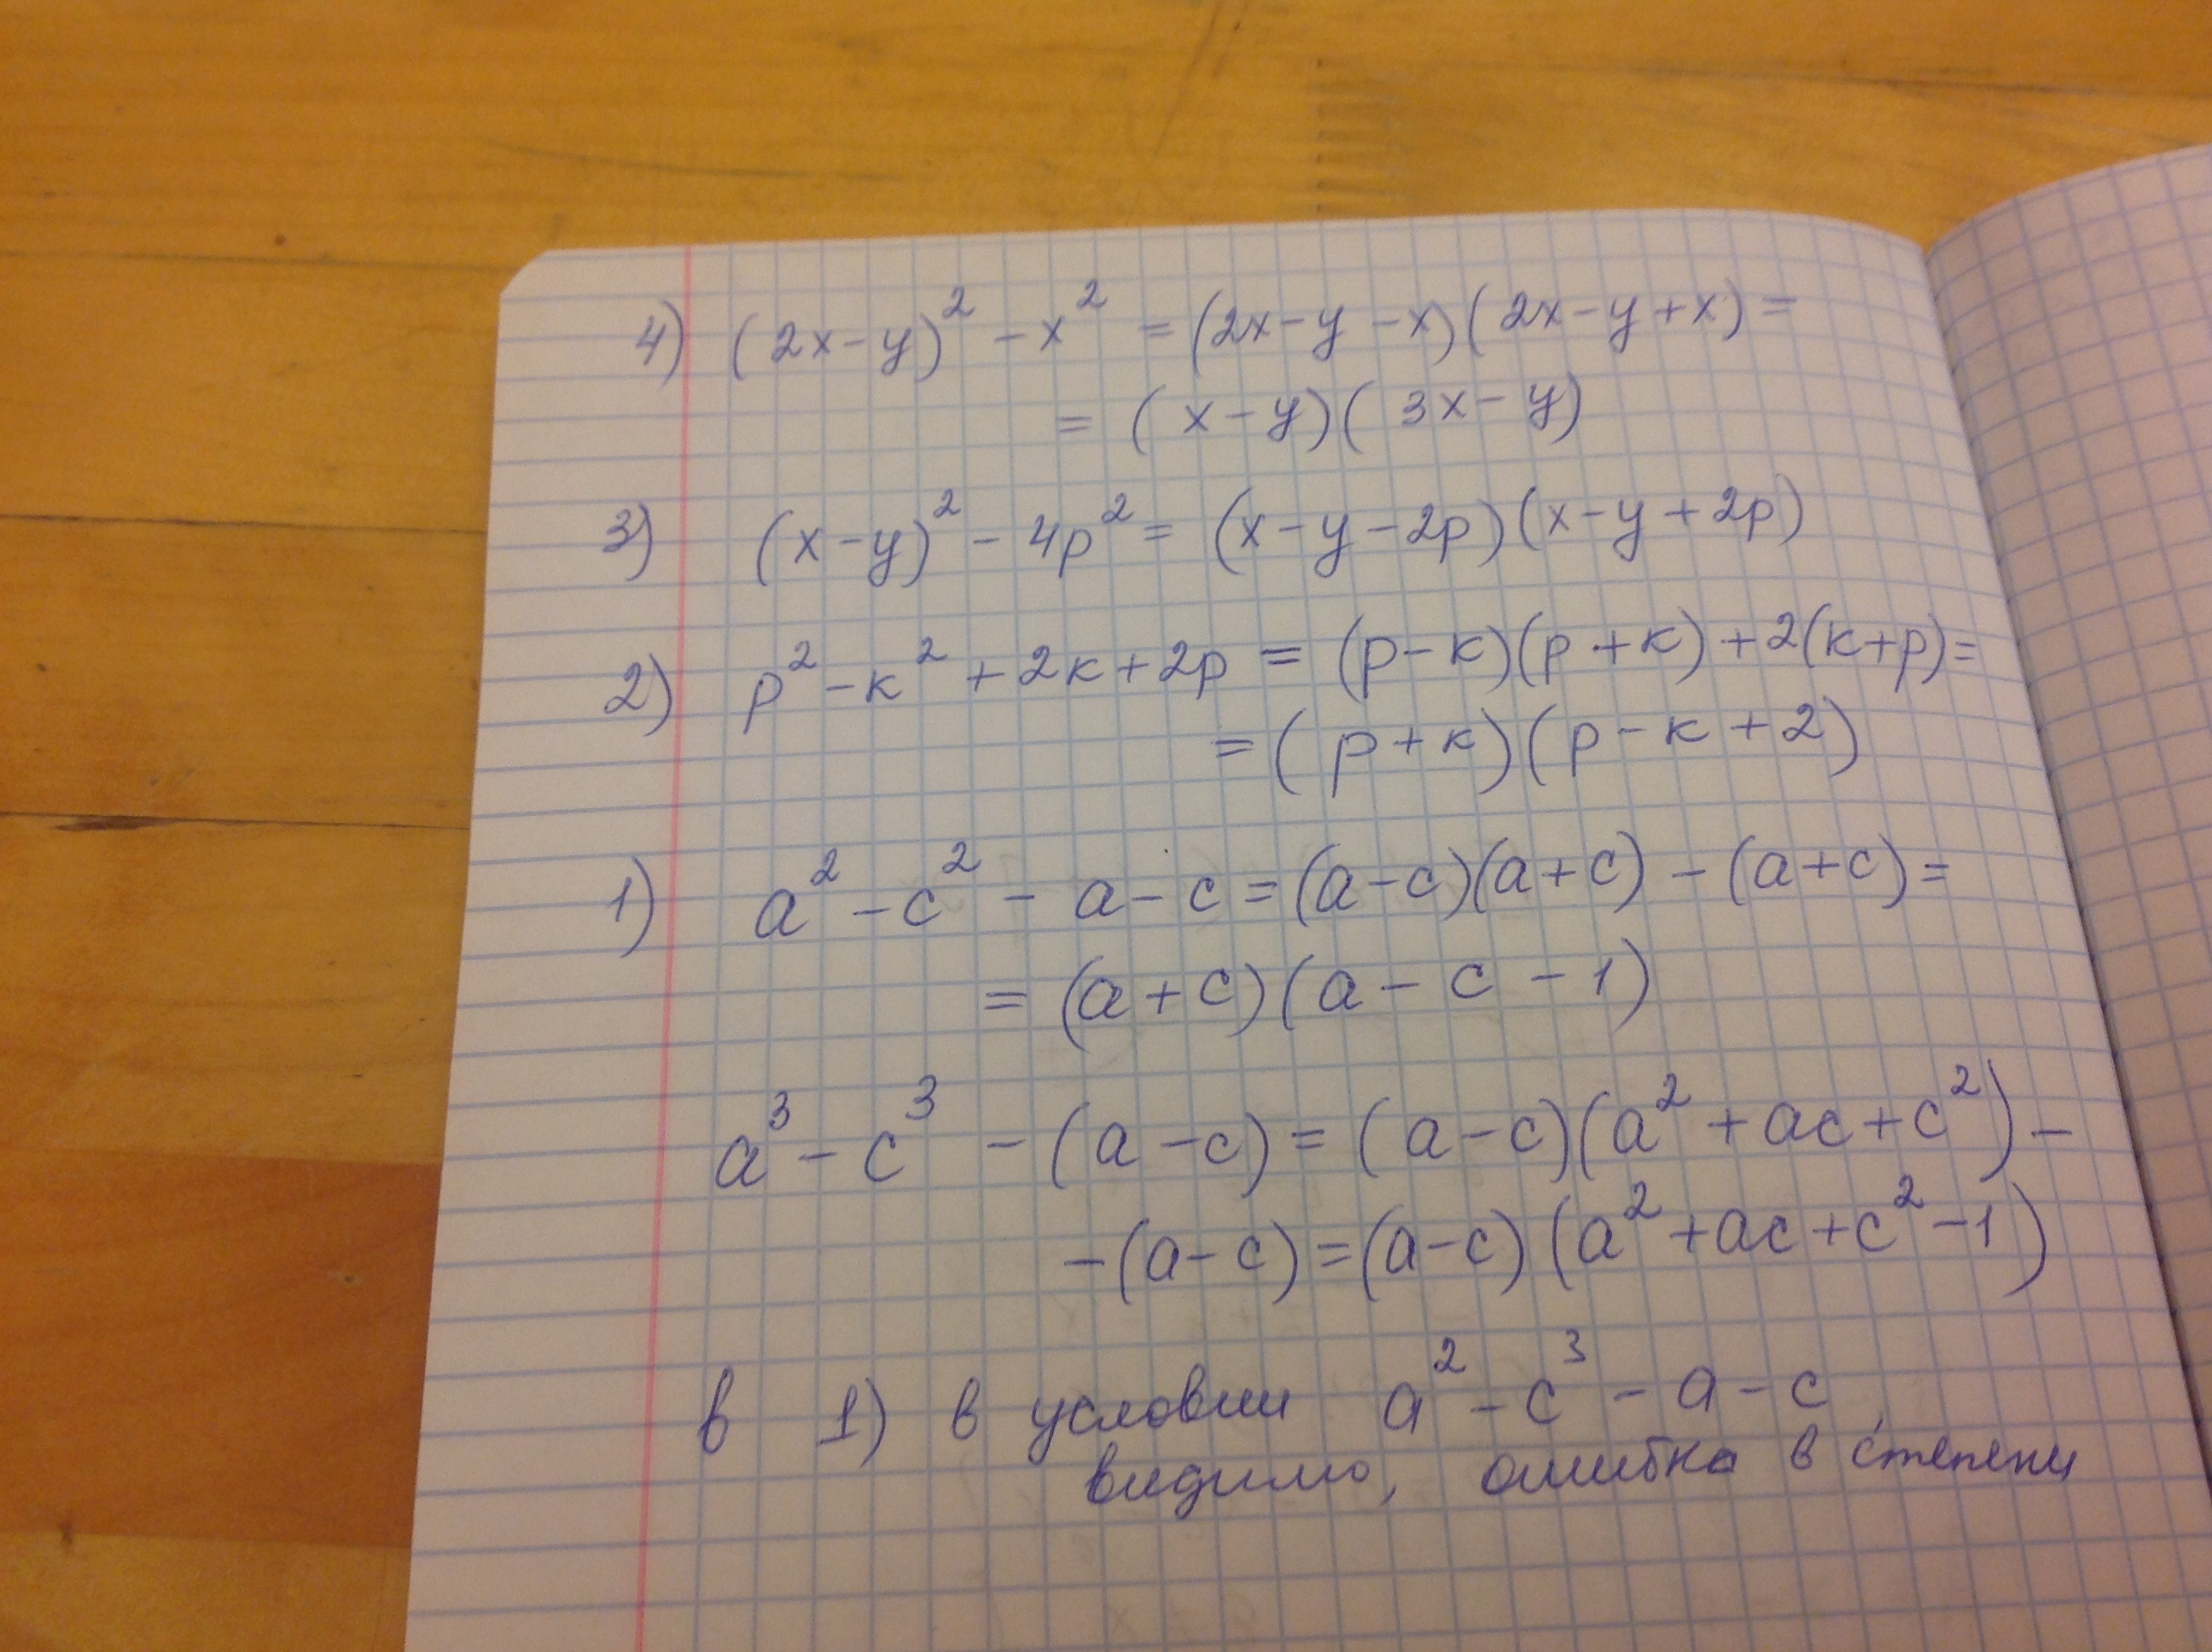 4) (2x-y)² - x² = (2x-y-x)(2x-y+x) =
= (x-y)(3x-y)
3) (x-y)² - 4p² = (x-y-2p)(x-y+2p)
2) p² - к² + 2к + 2p = (p-к)(p+к) + 2(к+p) =
= (p+к)(p-к+2)
1) a² - c² - a - c = (a-c)(a+c) - (a+c) =
= (a+c)(a-c-1)
a³ - c³ - (a-c) = (a-c)(a²+ac+c²) -
- (a-c) = (a-c)(a²+ac+c²-1)
в 1) в условии a² - c³ - a - c,
видимо, ошибка в степени